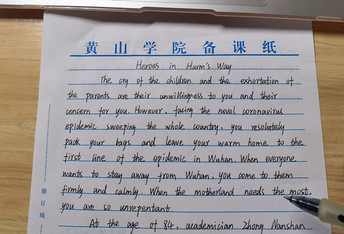 黄山学院备课纸
Heroes in Harm's Way
The cry of the children and the exhortation of
the parents are their unwillingness to you and their
concern for you. However, facing the novel coronavirus
epidemic sweeping the whole country, you resolutely
pack your bags and leave your warm home to the
first line of the epidemic in Wuhan. When everyone
wants to stay away from Wuhan, you come to them
firmly and calmly. When the motherland needs the most,
you are so unrepentant.
At the age of 84, academician Zhong Nanshan
装订线